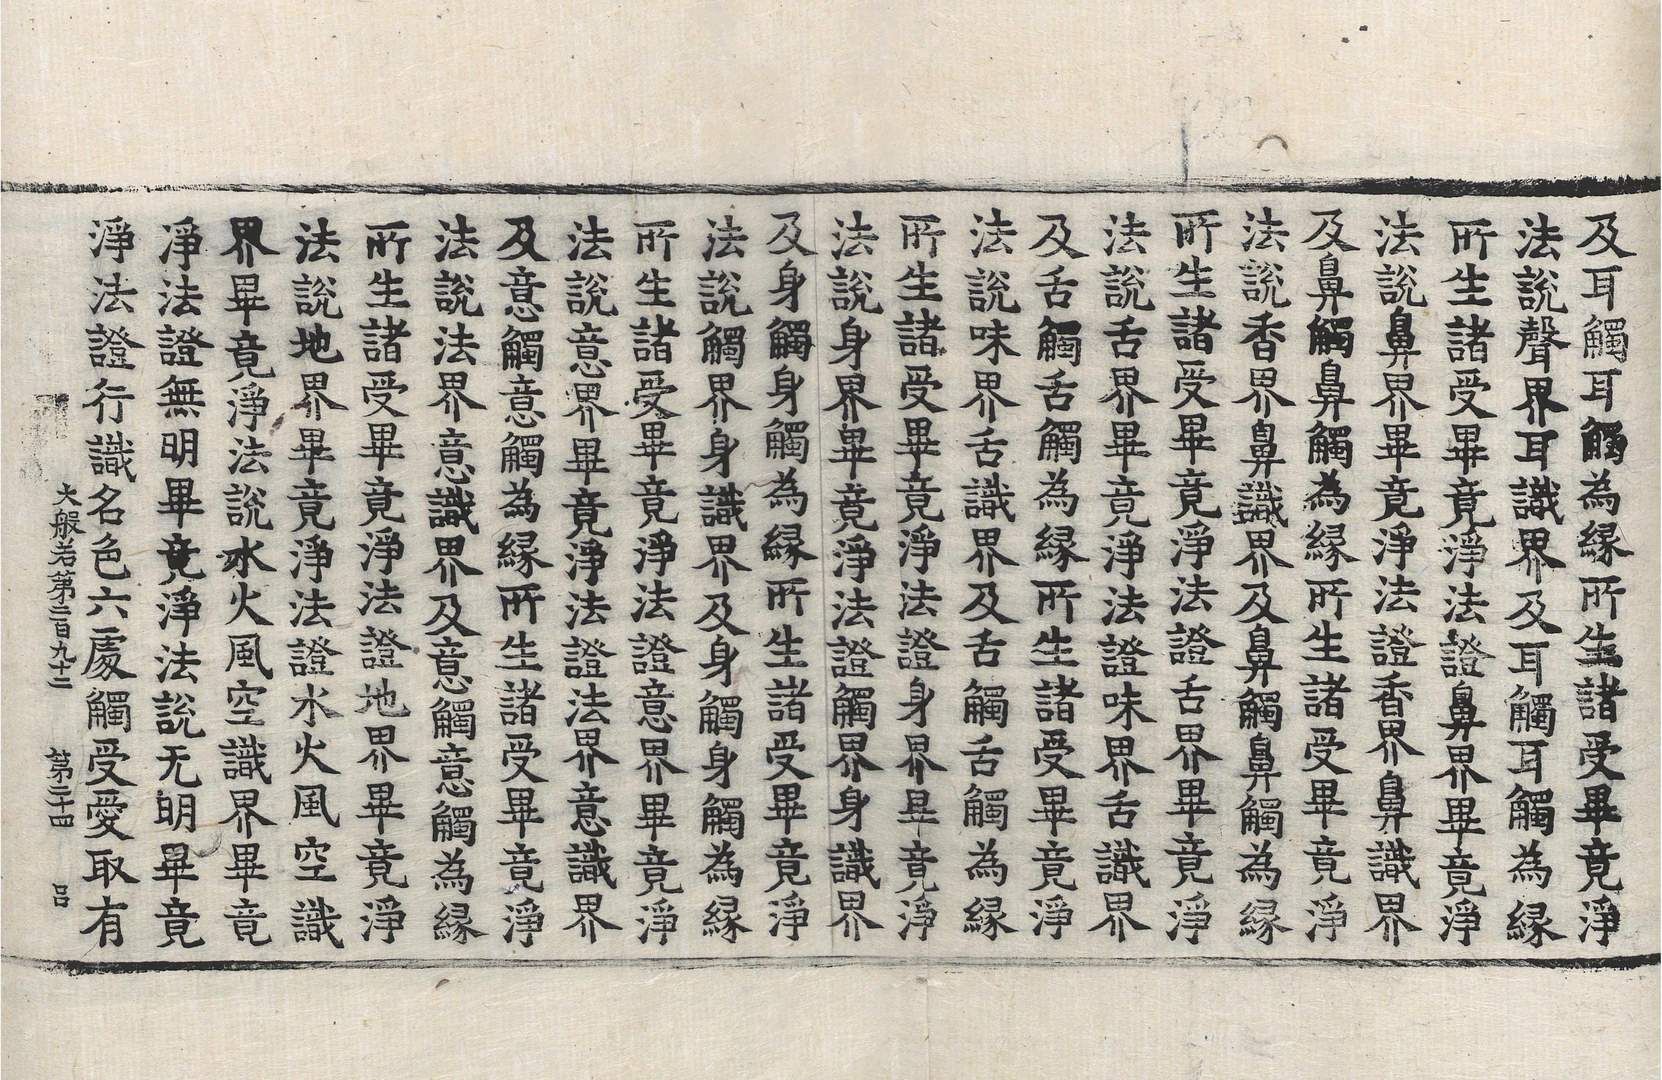 及耳觸耳觸為縁所生諸受畢竟淨
法說聲界耳識界及耳觸耳觸為縁
所生諸受畢竟淨法證鼻界畢竟淨
法說鼻界畢竟淨法證香界鼻識界
及鼻觸鼻觸為縁所生諸受畢竟淨
法說香界鼻識界及鼻觸鼻觸為縁
所生諸受畢竟淨法證舌界畢竟淨
法說舌界畢竟淨法證味界舌識界
及舌觸舌觸為縁所生諸受畢竟淨
法說味界舌識界及舌觸舌觸為縁
所生諸受畢竟淨法證身界畢竟淨
法說身界畢竟淨法證觸界身識界
及身觸身觸為縁所生諸受畢竟淨
法說觸界身識界及身觸身觸為縁
所生諸受畢竟淨法證意界畢竟淨
法說意界畢竟淨法證法界意識界
及意觸意觸為縁所生諸受畢竟淨
法說法界意識界及意觸意觸為縁
所生諸受畢竟淨法證地界畢竟淨
法說地界畢竟淨法證水火風空識
界畢竟淨法說水火風空識界畢竟
淨法證無明畢竟淨法說无明畢竟
淨法證行識名色六處觸受愛取有
大般若第二百九十二 第二十四 呂